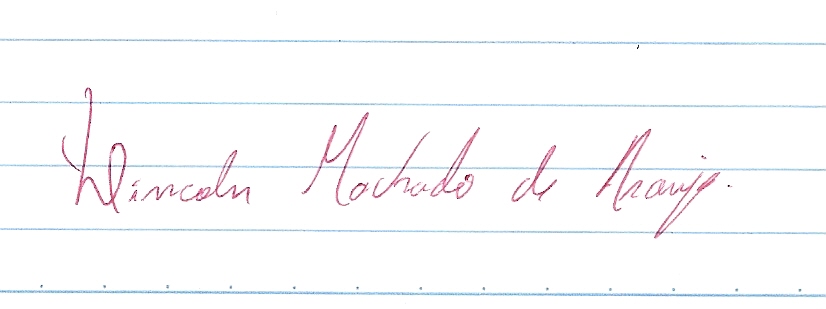 Lincoln Machado de Araujo.